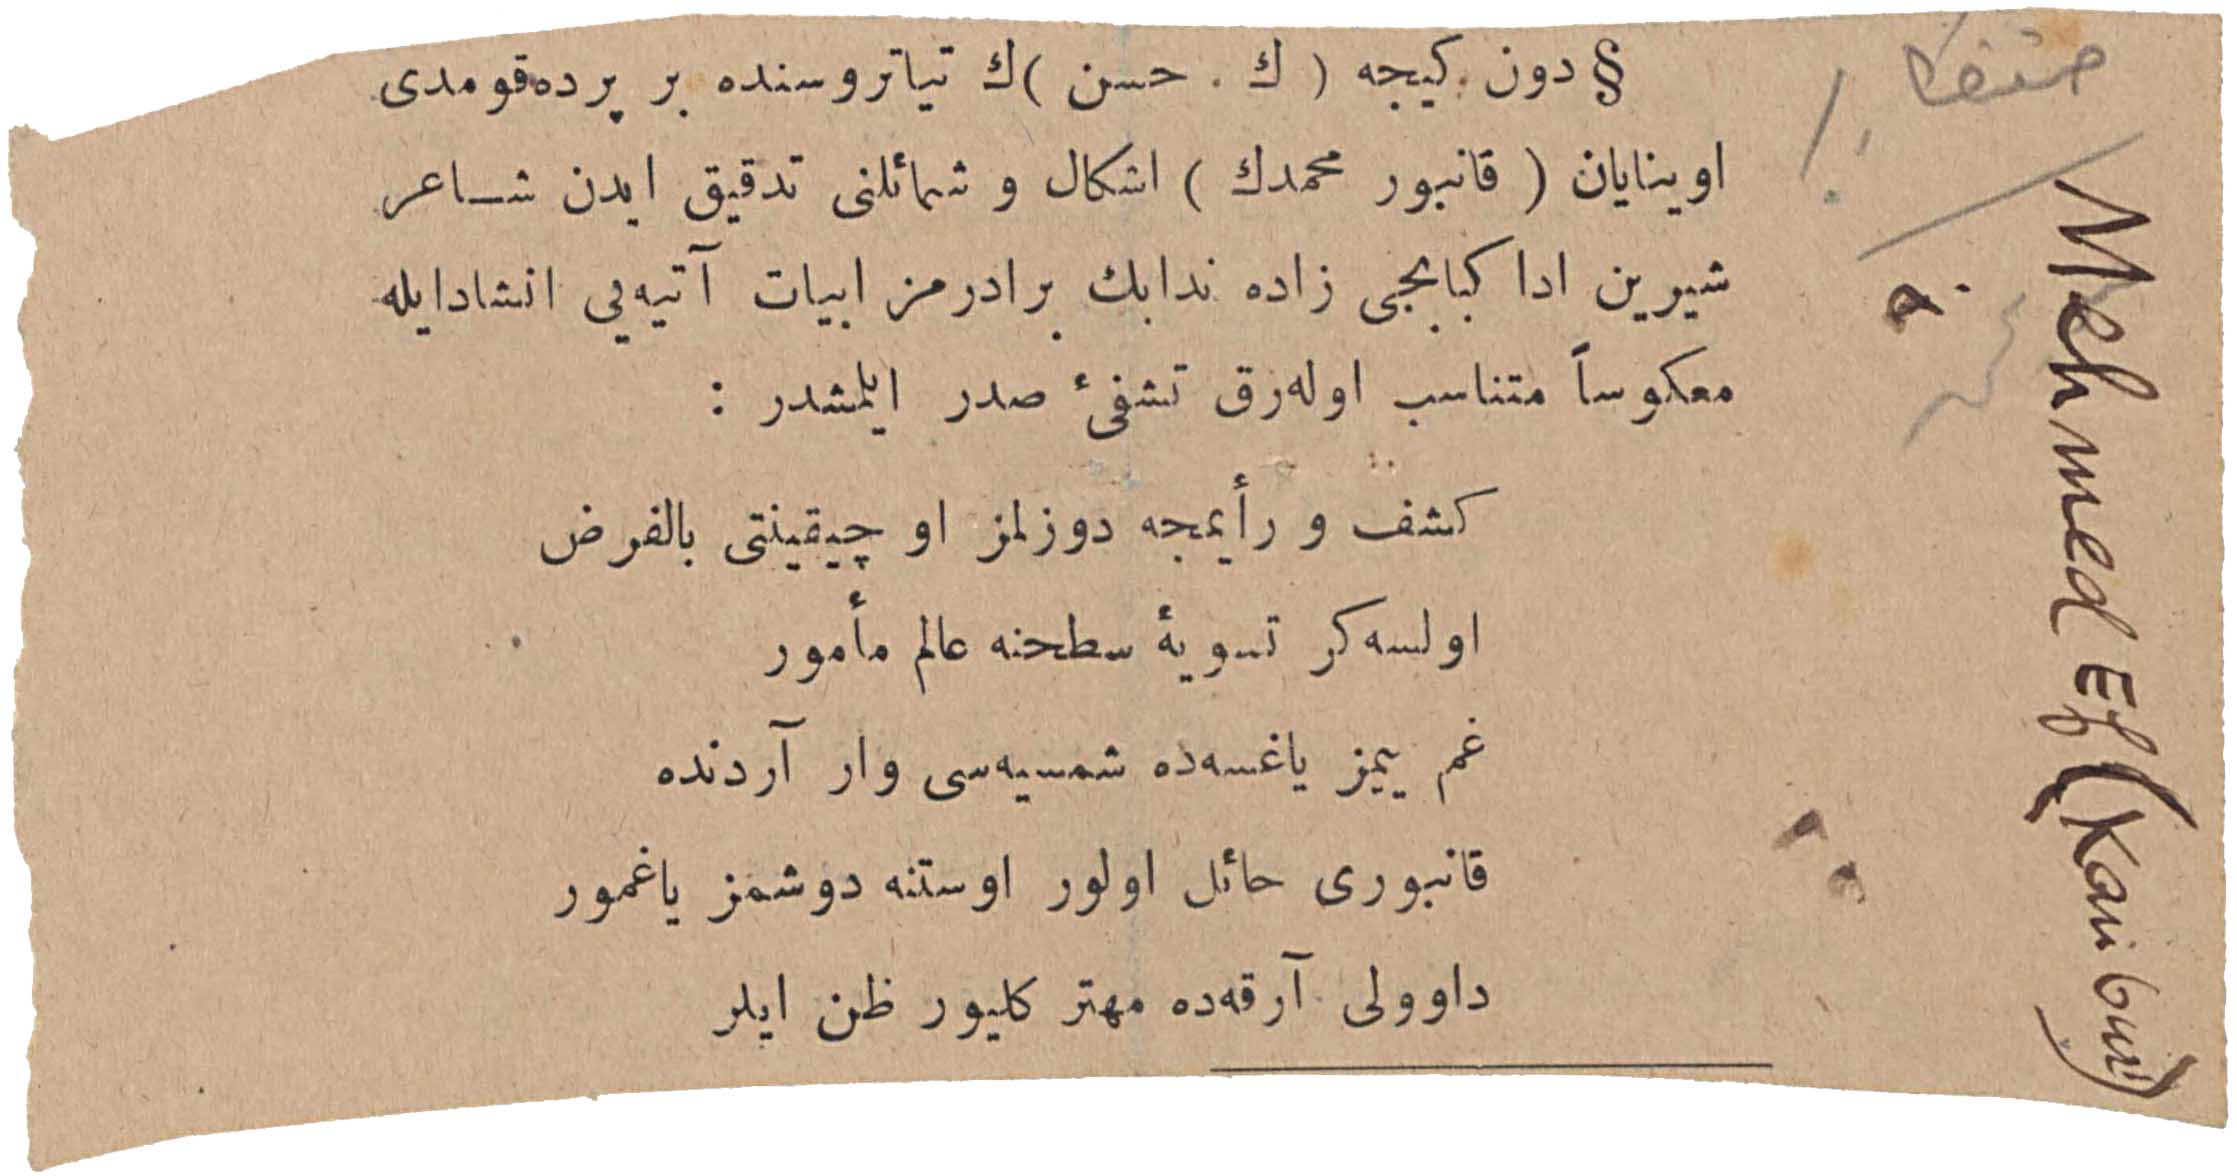 § دون كيجه ( ك . حسن )ك تياتروسنده بر پرده‌قومدى
اوينايان ( قانبور محمدك ) اشكال و شمائلنى تدقيق ايدن شاعر
شيرين ادا كبابجى زاده ندابك برادرمز ابيات آتيه‌يى انشادايله
معكوساً متناسب اوله‌رق تشفئ صدر ايلمشدر :
كشف و رأيمجه دوزلمز او چيقينتى بالفرض
اولسه‌كر تسويهٔ سطحنه عالم مأمور
غم يميز ياغسه‌ده شمسيه‌سى وار آردنده
قانبورى حائل اولور اوستنه دوشمز ياغمور
داوولى آرقه‌ده مهتر كليور ظن ايلر
Mehmed Ef (Kanbur)